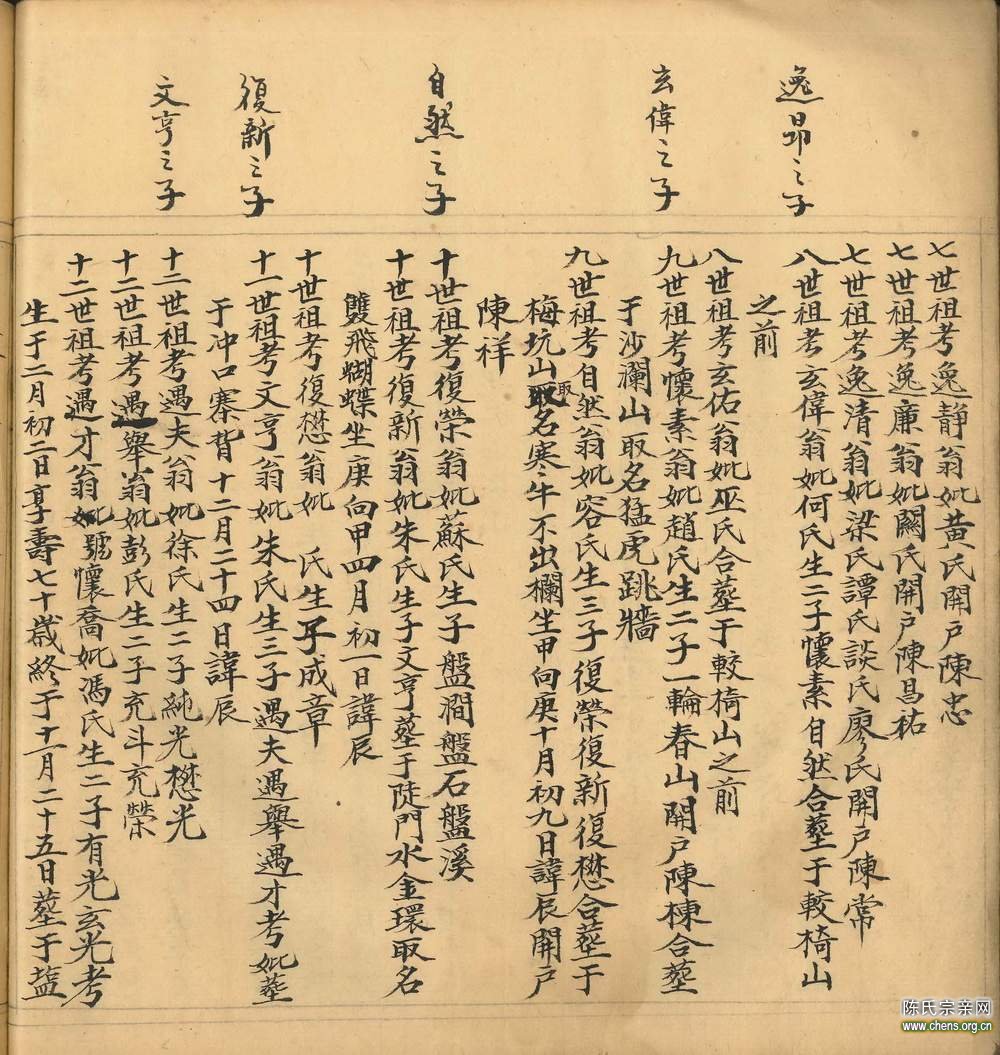 逸昂之子
玄偉之子
自然之子
復新之子
文亨之子
七世祖考逸靜翁妣黃氏開戶陳忠
七世祖考逸廉翁妣關氏開戶陳昌祐
七世祖考逸清翁妣梁氏譚氏談氏廖氏開戶陳常
八世祖考玄偉翁妣何氏生二子懷素自然合塟于較椅山
之前
八世祖考玄佑翁妣巫氏合塟于較椅山之前
九世祖考懷素翁妣趙氏生二子一輪春山開戶陳棟合塟
于沙瀾山取名猛虎跳牆
九世祖考自然翁妣容氏生三子復榮復新復懋合塟于
梅坑山取取名寒牛不出欄坐甲向庚十月初九日諱辰開戶
陳祥
十世祖考復榮翁妣蘇氏生子盤澗盤石盤溪
十世祖考復新翁妣朱氏生子文亨塟于陡門水金環取名
雙飛蝴蝶坐庚向甲四月初一日諱辰
十世祖考復懋翁妣 氏生子成章
十一世祖考文亨翁妣朱氏生三子遇夫遇舉遇才考妣塟
于冲口寨背十二月二十四日諱辰
十二世祖考遇夫翁妣徐氏生二子純光懋光
十二世祖考遇舉翁妣彭氏生二子充斗充榮
十二世祖考遇才翁妣號懷喬妣馮氏生二子有光玄光考
生于二月初二日享壽七十歲終于十一月二十五日塟于塩
陈氏宗亲网
www.chens.org.cn